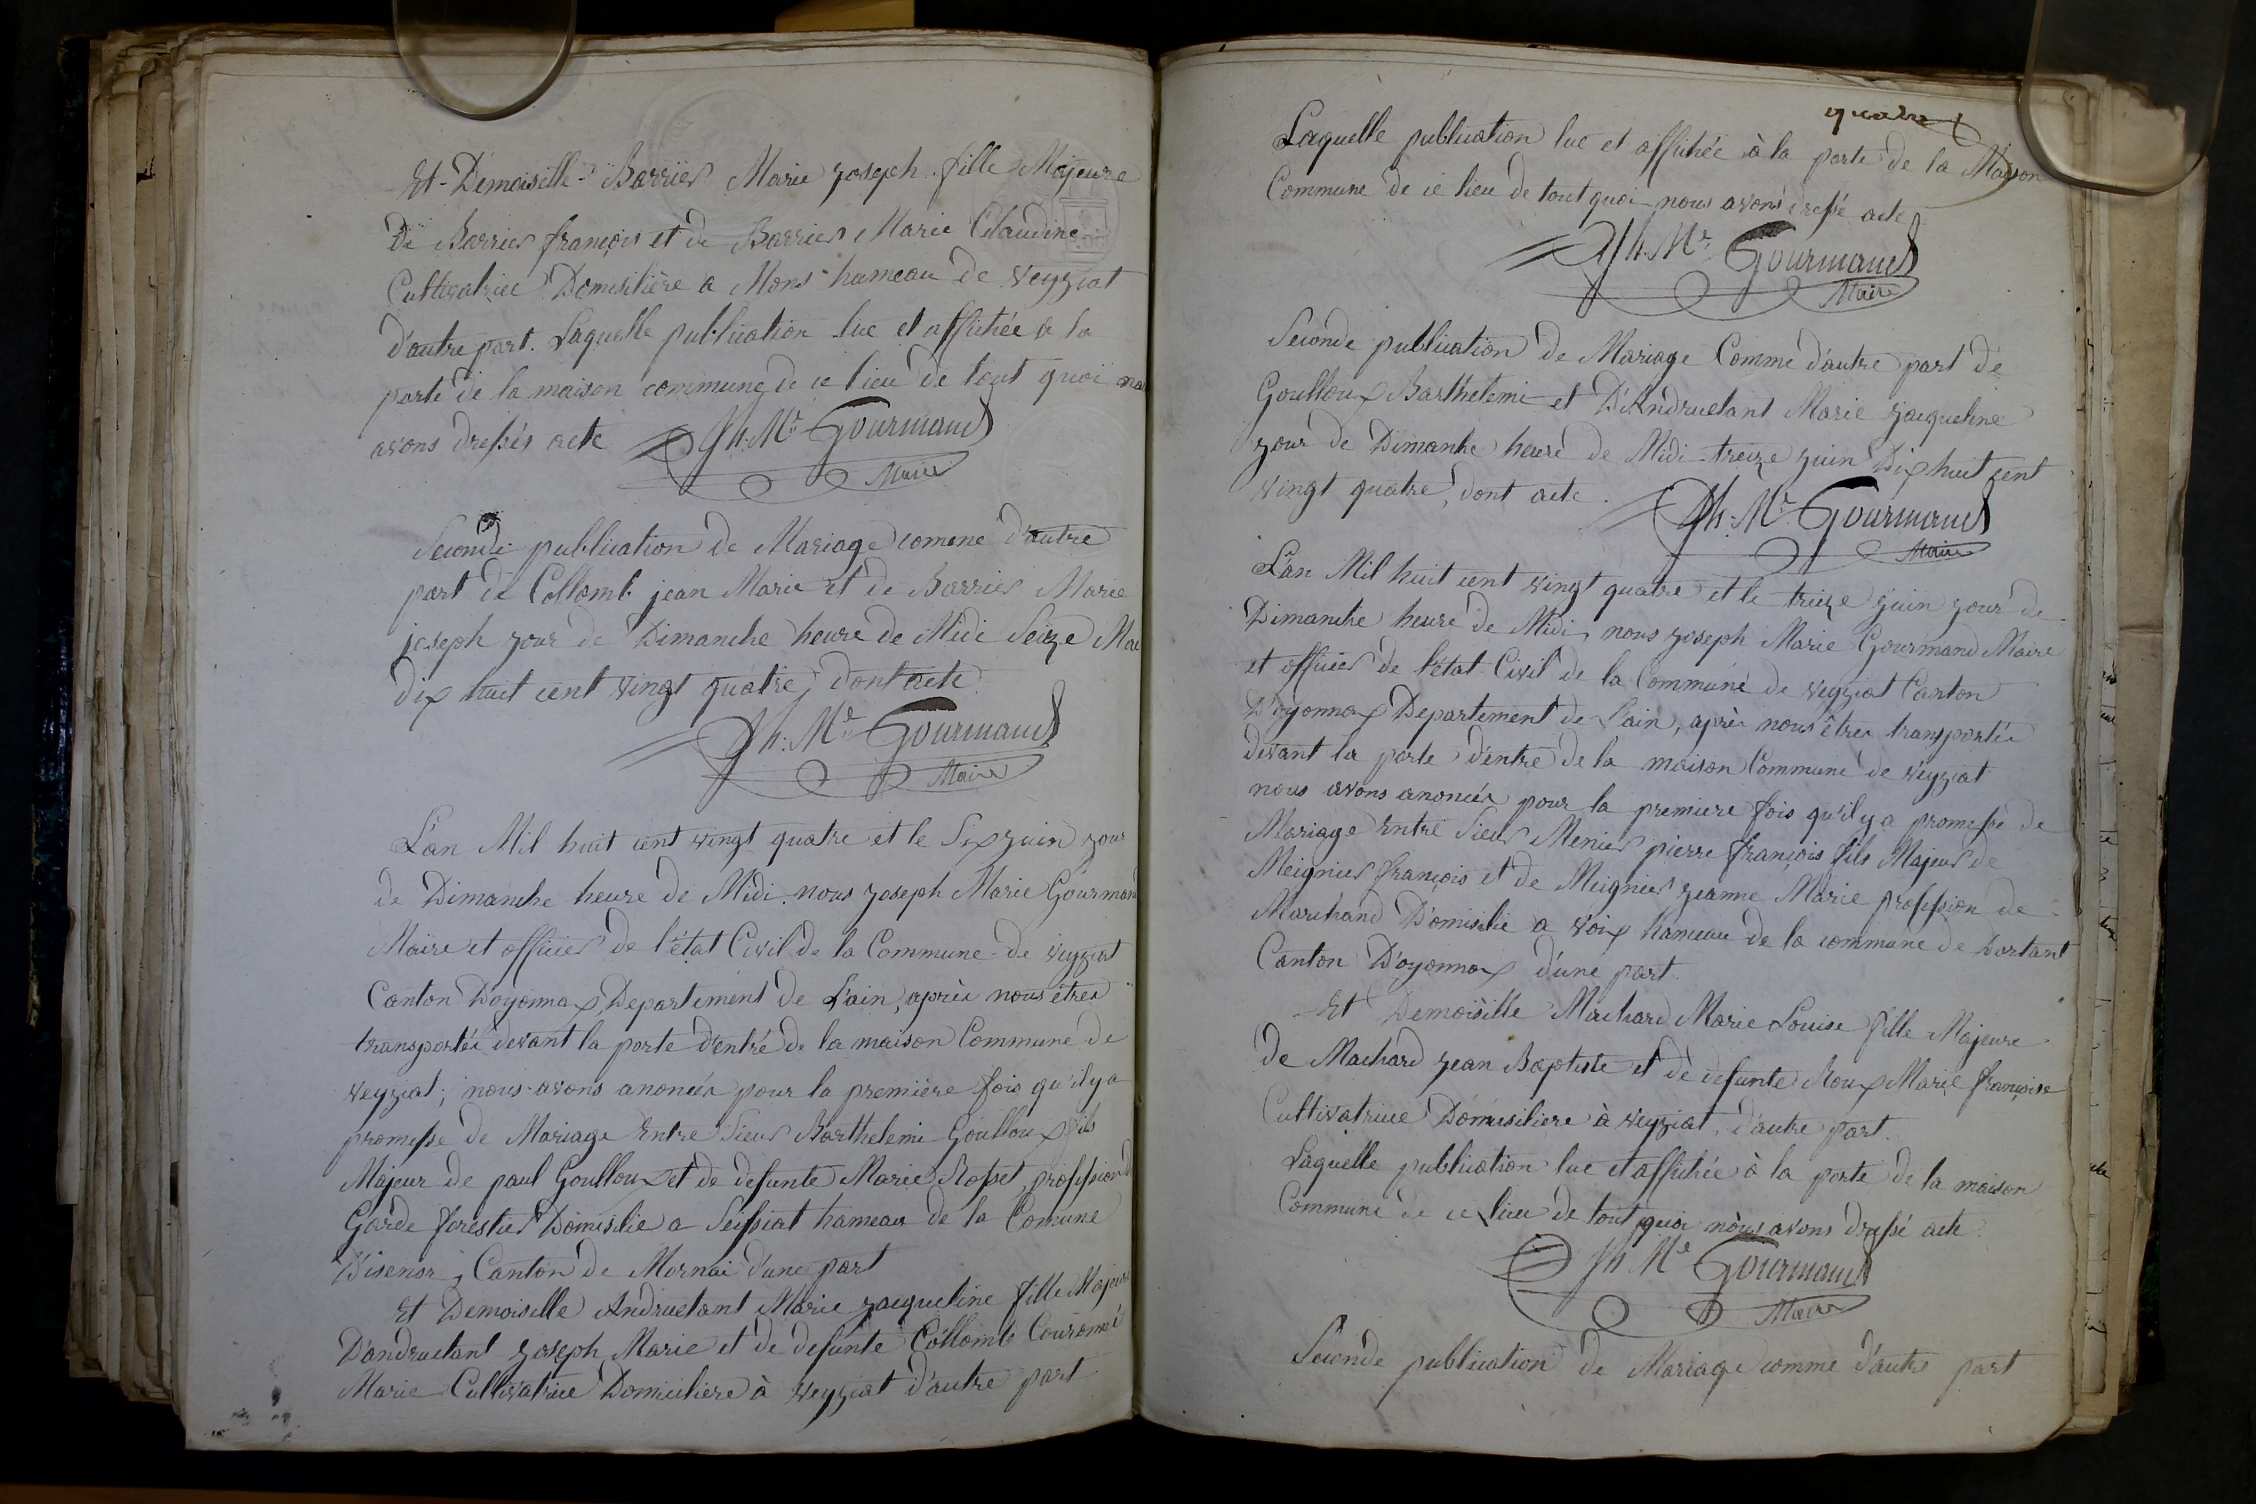 Et Demoiselle Barrier Marie Joseph fille Majeure
De Barrier françois et de Barrier Marie Claudine
Cultivatrice Domisilière a Mons hameau de Veyziat
d'autre part. Laquelle publication lue et affichée a la
porte de la maison commune de ce lieu de tout quoi nous
avons dressés acte Jh. Mie Gourmand
Maire
Seconde publication de Mariage comene d'autre
part de Collomb jean Marie et de Barrier Marie
joseph jour de Dimanche heure de Midi Seize Mai
dix huit cent vingt quatre, dont acte
Jh. Mie Gourmand
Maire
L'an Mil huit cent vingt quatre et le Six juin jour
de Dimanche heure de Midi nous Joseph Marie Gourmand
Maire et officier de l'état Civil de la Commune de Veyziat
Canton Doyonnax Departement de L'ain, après nous êtres
transportés devant la porte d'entré de la maison Commune de
veyziat; nous avons anoncés pour la première fois qu'il y a
promesse de Mariage Entre Sieur Barthelemi Goulloux fils
Majeur de paul Goulloux et de defunte Marie Rosset, profession d
Garde forestier Domisilie a Seissiat hameau de la Comune
D'isenor, Canton de Mornai d'une part
Et Demoiselle Andruetant Marie Jacqueline fille Majeure
D'andruetant Joseph Marie et de defunte Collomb Couronné
Marie Cultivatrice Domiciliere à Veyziat d'autre part
quatre
Laquelle publication lue et affichée à la porte de la Maison
Commune de ce lieu de tout quoi nous avons dressé acte
Jh. Mie Gourmand
Maire
Seconde publication de Mariage Comme d'autre part de
Goulloux Barthelemi et D'Andruetant Marie Jacqueline
jour de Dimanhe heure de Midi treize juin Dix huit cent
vingt quatre, dont acte. Jh. Mie Gourmand
Maire
L'an Mil huit cent vingt quatre et le treize juin jour de
Dimanche heure de Midi, nous Joseph Marie Gourmand Maire
et officier de l'état Civil de la Commune de Veyziat Canton
D'oyonnax Departement de L'ain, après nous êtres transportés
devant la porte d'entre de la maison Commune de veyziat
nous avons anoncés pour la premiere fois qu'il y a promesse de
Mariage Entre Sieur Menier pierre françois fils Majeur de
Meignier françois et de Meignier Jeanne Marie profession de
Marchand Domisilie a Voix hameau de la commune de Dortant
Canton D'oyonnax d'une part.
Et Demoisille Machard Marie Louise fille Majeure
De Machard Jean Baptiste et de defunte Roux Marie françoise
Cultivatrice Domisiliere à veyziat, d'autre part.
Laquelle publication lue et affichée à la porte de la maison
Commune de ce lieu de tout quoi nous avons dressé acte
Jh Mie Gourmand
Maire
Seconde publication de Mariage comme d'autre part